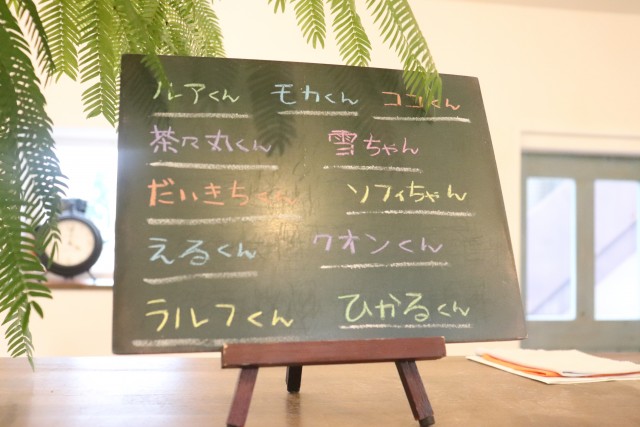 ルアくん モカくん ココくん
茶々丸くん 雪ちゃん
だいきちくん ソフィちゃん
えるくん クオンくん
ラルフくん ひかるくん